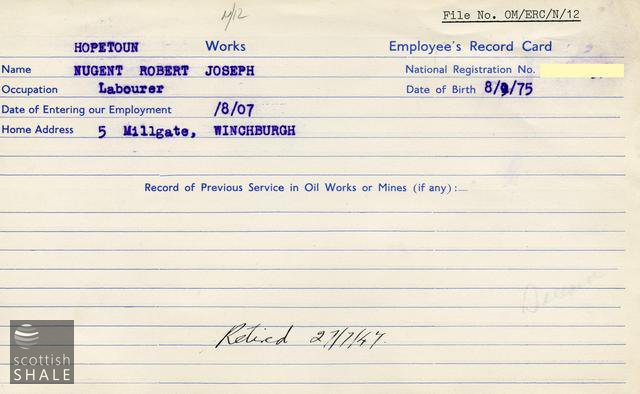 N/12
File No. OM/ERC/N/12
HOPETOUN Works Employee's Record Card
Name NUGENT ROBERT JOSEPH National Registration No.
Occupation Labourer Date of Birth 8/9/75
Date of Entering our Employment /8/07
Home Address 5 Millgate, WINCHBURGH
Record of Previous Service in Oil Works or Mines (if any) :—
Retired 27/7/47.
scottish
SHALE